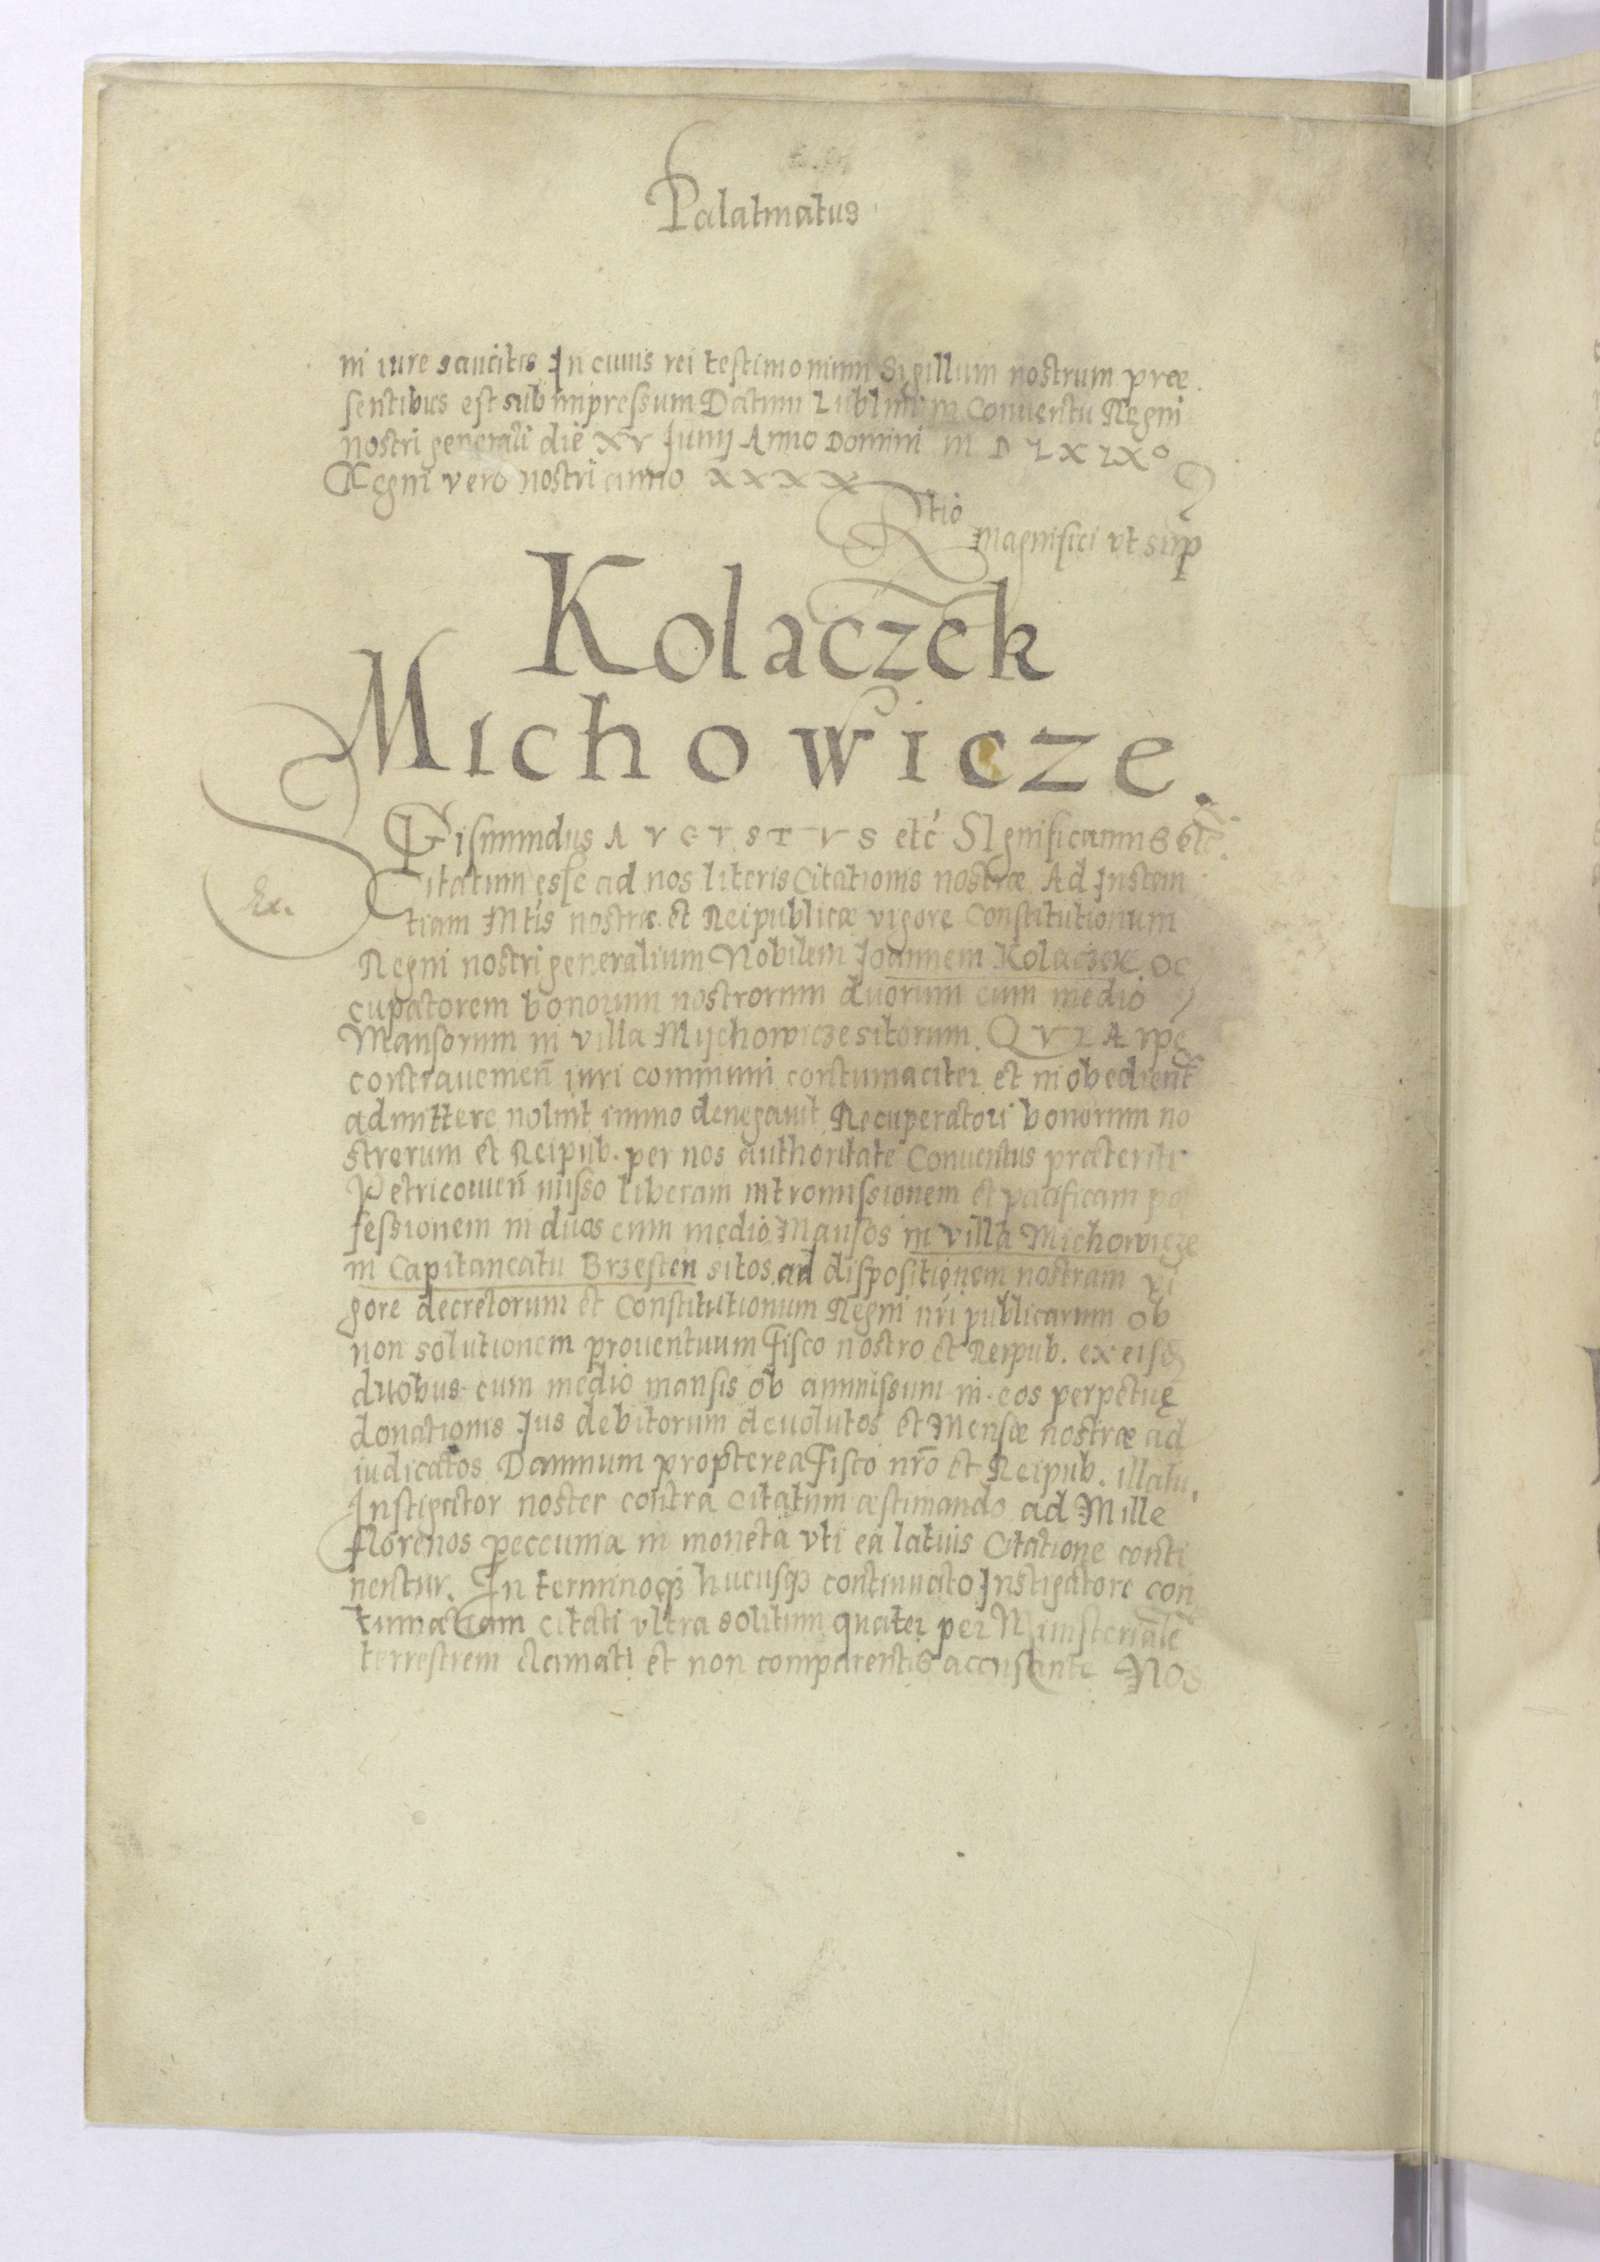 Palatinatus
in iure sancitis In cuius rei testimonium Sigillum nostrum præ
sentibus est subimpressum Datum Lublini in Conventu Regni
nostri generali die XV Junij Anno Domini M D LX IX°
Regni vero nostri anno XXXX
Rtio
Magnifici vt sup
Kolaczek
Michowicze.
Gismundus AVGVSTVS etć Significamus etc.
Ex.
Citatum esse ad nos literis Citationis nostræ Ad Instan
tiam Mtis nostræ et Reipublicæ vigore Constitutionum
Regni nostri generalium Nobilem Joannem Kolaczek oc
cupatorem bonorum nostrorum duorum cum medio
Mansorum in villa Mychowicze sitorum. QVIA ipe
contrauenień iuri communi contumaciter et inobedient
admittere noluit immo denegauit Recuperatori bonorum no
strorum et Reipub. per nos authoritate Conuentus præteriti
Petricouień misso liberam intromissionem et pacificam pos
sessionem in duos cum medio Mansos in villa Michowicze
in Capitaneatu Brzesten sitos ad dispositionem nostram vi
gore decretorum et Constitutionum Regni nri publicarum ob
non solutionem prouentuum Fisco nostro et Reipub. ex eisdē
duobus cum medio mansis ob amissum in eos perpetuę
donationis Jus debitorum deuolutos et Mensæ nostræ ad
iudicatos Damnum propterea Fisco nrō et Reipub. illatu.
Instigator noster contra citatum æstimando ad Mille
florenos peccunia in moneta vti ea latius Citatione conti
nentur. In terminoq3 hucusq3 continuato Instigatore con
tumatiam citati vltra solitum quater per Ministerialē
terrestrem clamati et non comparentis accusante Nos